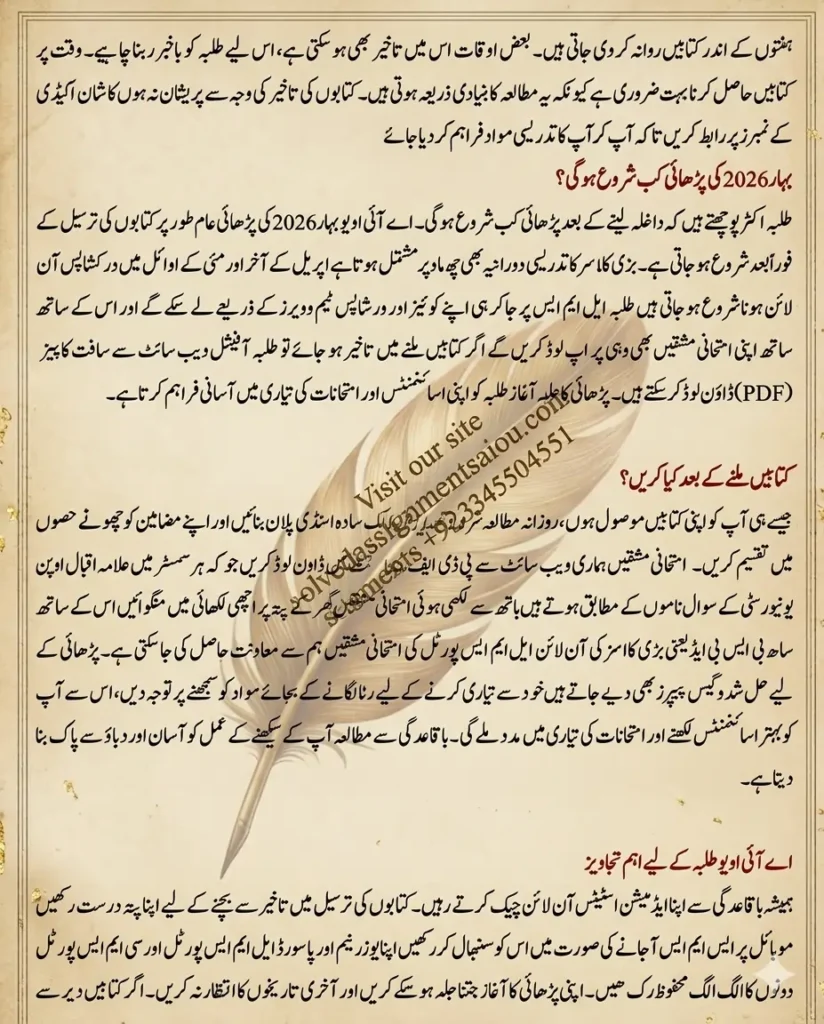 ہفتوں کے اندر کتابیں روانہ کر دی جاتی ہیں۔ بعض اوقات اس میں تاخیر بھی ہو سکتی ہے، اس لیے طلبہ کو باخبر رہنا چاہیے۔ وقت پر
کتابیں حاصل کرنا بہت ضروری ہے کیونکہ یہ مطالعہ کا بنیادی ذریعہ ہوتی ہیں۔ کتابوں کی تاخیر کی وجہ سے پریشان نہ ہوں کاشان اکیڈی
کے نمبرز پر رابط کریں تاکہ آپ کر آپ کا تدریسی مواد فراہم کر دیا جائے
بہار 2026 کی پڑھائی کب شروع ہوگی؟
طلبہ اکثر پوچھتے ہیں کہ داخلہ لینے کے بعد پڑھائی کب شروع ہوگی۔ اے آئی او یو بہار 2026 کی پڑھائی عام طور پر کتابوں کی ترسیل کے
فوراً بعد شروع ہو جاتی ہے۔ بڑی کلاسر کا تدریسی دورانیہ بھی چھ ماہ پر مشتمل ہوتا ہے اپریل کے آخر اور مئی کے اوائل میں ورکشاپس آن
لائن ہونا شروع ہو جاتی ہیں طلبہ ایل ایم ایس پر جا کر ہی اپنے کوئیز اور ورشاپس ٹیم وویرز کے ذریعے لے سکے گے اور اس کے ساتھ
ساتھ اپنی امتحانی مشقیں بھی وہی پر اپ لوڈ کریں گے اگر کتابیں ملنے میں تاخیر ہو جائے تو طلبہ آفیشل ویب سائٹ سے سافت کاپیز
(PDF) ڈاؤن لوڈ کر سکتے ہیں۔ پڑھائی کا جلد آغاز طلبہ کو اپنی اسائنمنٹس اور امتحانات کی تیاری میں آسانی فراہم کرتا ہے۔
کتابیں ملنے کے بعد کیا کریں؟
جیسے ہی آپ کو اپنی کتابیں موصول ہوں، روزانہ مطالعہ سادہ اسٹڈی پلان بنائیں اور اپنے مضامین کو چھوٹے حصوں
میں تقسیم کریں۔ امتحانی مشقیں ہماری ویب سائٹ سے پی ڈی ایف ڈاون لوڈ کریں جو کہ ہر سمسٹر میں علامہ اقبال اوپن
یونیورسٹی کے سوال ناموں کے مطابق ہوتے ہیں ہاتھ سے لکھی ہوئی امتحانی گھر کے پتہ پر اچھی لکھائی میں منگوائیں اس کے ساتھ
ساھ بی ایس بی ایڈ یعنی بڑی کااسز کی آن لائن ایل ایم ایس پورٹل کی امتحانی مشقیں ہم سے معاونت حاصل کی جا سکتی ہے۔ پڑھائی کے
لیے حل شد و گیس پیپرز بھی دیے جاتے ہیں خود سے تیاری کرنے کے لیے رٹا لگانے کے بجائے مواد کو سمجھنے پر توجہ دیں، اس سے آپ
کو بہتر اسائنمنٹس لکھنے اور امتحانات کی تیاری میں مدد ملے گی۔ باقاعدگی سے مطالعہ آپ کے سیکھنے کے عمل کو آسان اور دباؤ سے پاک بنا
دیتا ہے۔
اے آئی او یو طلبہ کے لیے اہم تجاویز
ہمیشہ باقاعدگی سے اپنا ایڈمیشن اسٹیٹس آن لائن چیک کرتے رہیں۔ کتابوں کی ترسیل میں تاخیر سے بچنے کے لیے اپنا پتہ درست رکھیں
موبائل پر ایس ایم ایس آجانے کی صورت میں اس کو سنبھال کر رکھیں اپنا یوزر نیم اور پاسورڈ ایل ایم ایس پورٹل اور سی ایم ایس پورٹل
دونوں کا الگ الگ محفوظ رک ھیں۔ اپنی پڑھائی کا آغاز جتنا جلد ہو سکے کریں اور آخری تاریخوں کا انتظار نہ کریں۔ اگر کتابیں دیر سے
Visit our site
olvedassignmentsaiou.com
+923345504551